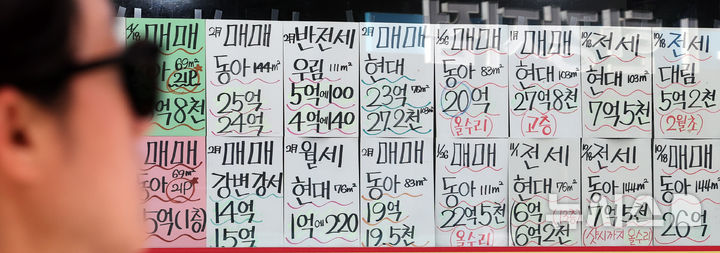 4/19 매매
동아 69m²
21P
억8천
2月 매매
동아 144m²
25억
24억
2月 반전세
우림 111m²
5억에 00
4억에 40
2月 매매
현대
23억 76m²
27.2천 103m²
1/26 매매
동아 83m²
20억
(올수리)
1月 매매
현대 103m²
27억8천
(고층)
10/18 전세
현대 103m²
7억5천
10/18 전세
대림
5억2천
(2월초)
매매
동아 69m²
21P
5억(1층)
2月 매매
강변경서
14억
15억
2月 월세
현대 76m²
1억에 220
2月 매매
동아 83m²
19억
19.5천
1/26 매매
동아 111m²
22억5천
(올수리)
1/1 전세
현대 76m²
6억
6억2천
10/18 전세
동아 144m²
7억5천
(샷시까지 올수리)
10/18 매매
동아 144m²
26억
뉴시스